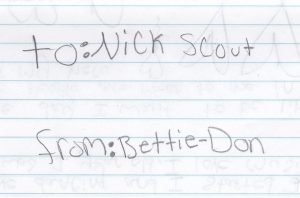 to:Nick Scout
from:Bettie-Don